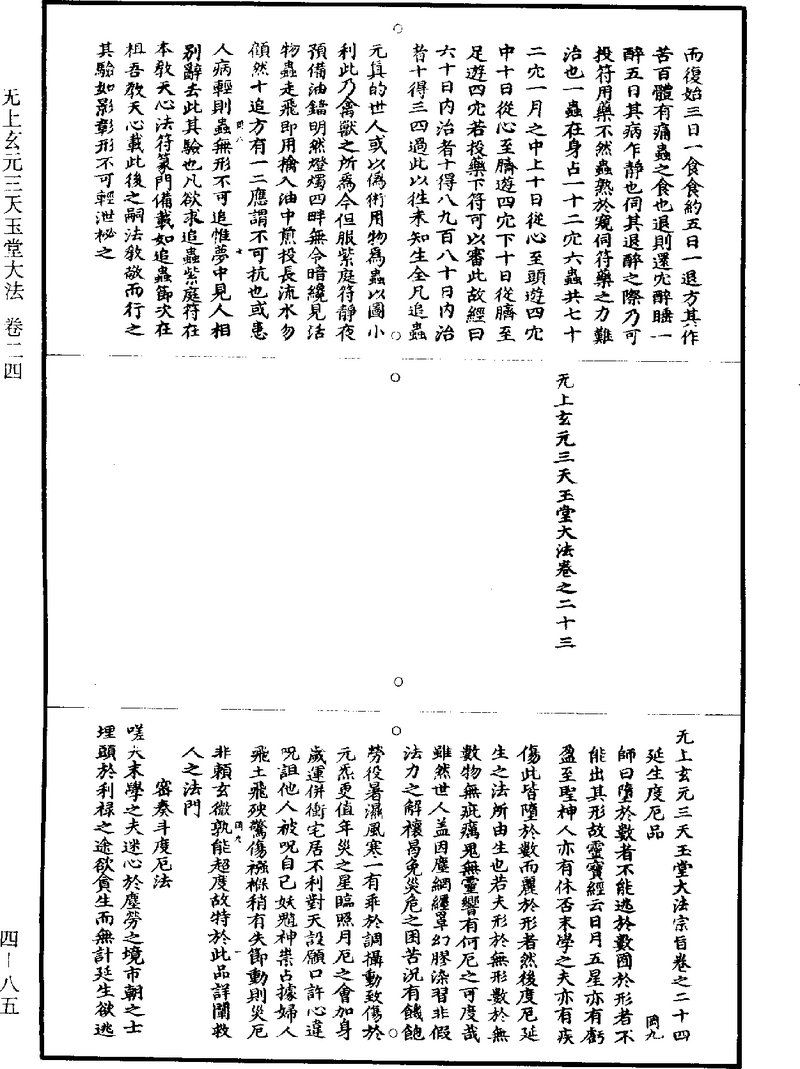 无上玄元三天玉堂大法　卷二四
四－八五
而復始三日一食食約五日一退方其作
苦百體有痛蟲之食也退則還穴醉睡一
醉五日其病乍靜也伺其退醉之際乃可
投符用藥不然蟲熟於窺伺符藥之力難
治也一蟲在身占一十二穴六蟲共七十
二穴一月之中上十日從心至頭遊四穴
中十日從心至臍遊四穴下十日從臍至
足遊四穴若投藥下符可以審此故經曰
六十日內治者十得八九百八十日內治
者十得三四過此以往未知生全凡追蟲
元真的世人或以偽術用物為蟲以圖小
利此乃禽獸之所為今但服紫庭符靜夜
預備油鐺明然燈燭四畔無令暗纔見活
物蟲走飛即用擒入油中煎投長流水勿
傾然十追方有一二應謂不可抗也或患
人病輕則蟲無形不可追惟夢中見人相
別辭去此其驗也凡欲求追蟲紫庭符在
本教天心法符篆門備載如追蟲節次在
祖吾教天心載此後之嗣法教敬而行之
其驗如影彰形不可輕泄秘之
无上玄元三天玉堂大法卷之二十三
无上玄元三天玉堂大法宗旨卷之二十四
岡九
延生度厄品
師曰墮於數者不能逃於數囿於形者不
能出其形故靈寶經云日月五星亦有虧
盈至聖神人亦有休否末學之夫亦有疾
傷此皆墮於數而麗於形者然後度厄延
生之法所由生也若夫形於無形數於無
數物無疵癘鬼無靈響有何厄之可度哉
雖然世人蓋因塵網纏罩幻膠染習非假
法力之解禳曷免災危之困苦況有饑飽
勞役暑濕風寒一有乖於調攝動致傷於
元炁更值年災之星臨照月厄之會加身
歲運併衝宅居不利對天設願口許心違
呪詛他人被呪自己妖魈神祟占據婦人
飛土飛殃驚傷襁褓稍有失節動則災厄
非賴玄微孰能超度故特於此品詳闡救
人之法門
密奏斗度厄法
嗟夫末學之夫迷心於塵勞之境市朝之士
埋頭於利祿之途欲貪生而無計延生欲逃